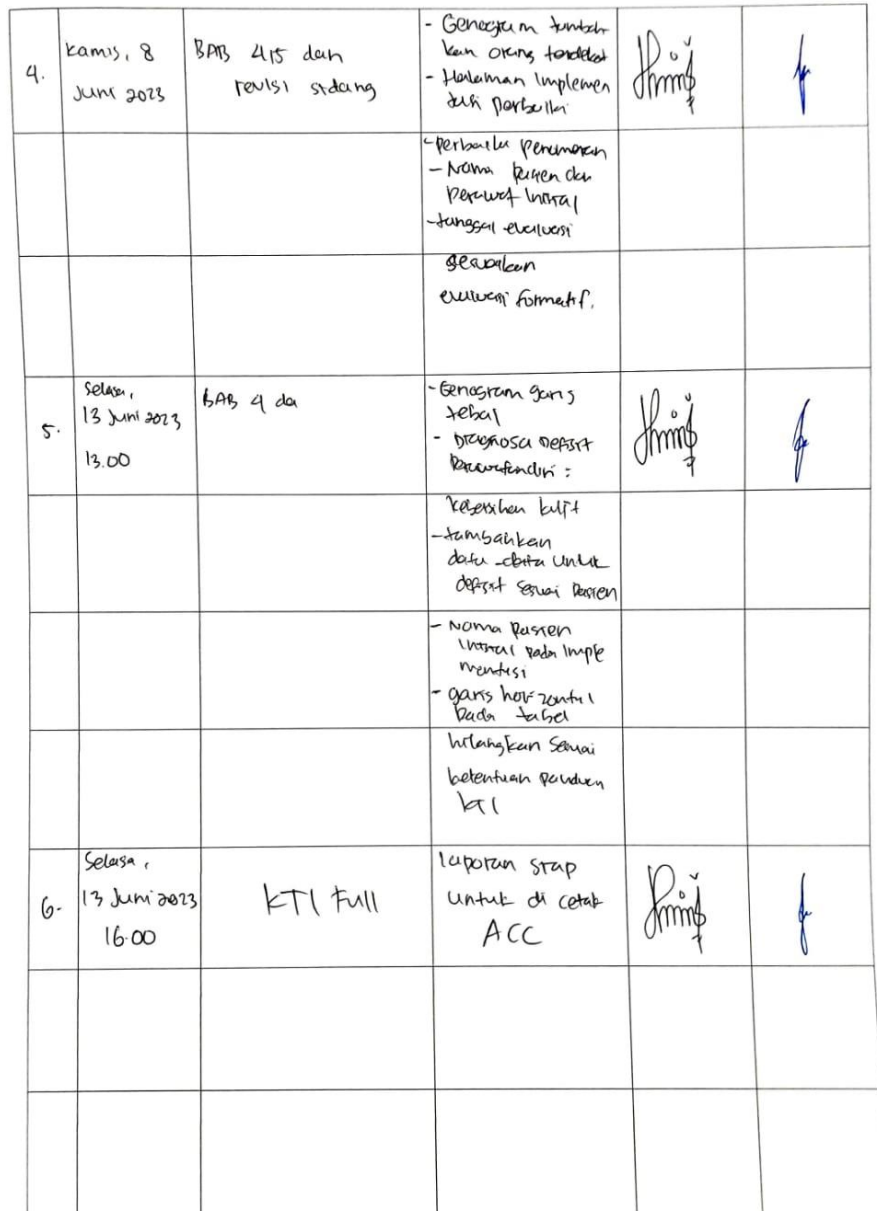 4.
Kamis, 8
Juni 2023
BAB 4,5 dan
revisi sidang
- Genogram tambah
kan orang terdekat
- Halaman Implemen
tasi perbaiki
- perbaiki penomoran
- Nama pasien dan
perawat inisial
- tanggal evaluasi
sesuaikan
evaluasi formatif.
5.
Selasa,
13 Juni 2023
13.00
BAB 4 da
- Genogram garis
tebal
- Diagnosa Defisit
Perawatan diri :
kebersihan kulit
- tambahkan
data-data untuk
defisit sesuai pasien
- Nama pasien
inisial pada Imple
mentasi
- garis horizontal
pada tabel
hilangkan sesuai
ketentuan panduan
KTI
6.
Selasa,
13 Juni 2023
16.00
KTI Full
laporan siap
untuk di cetak
ACC